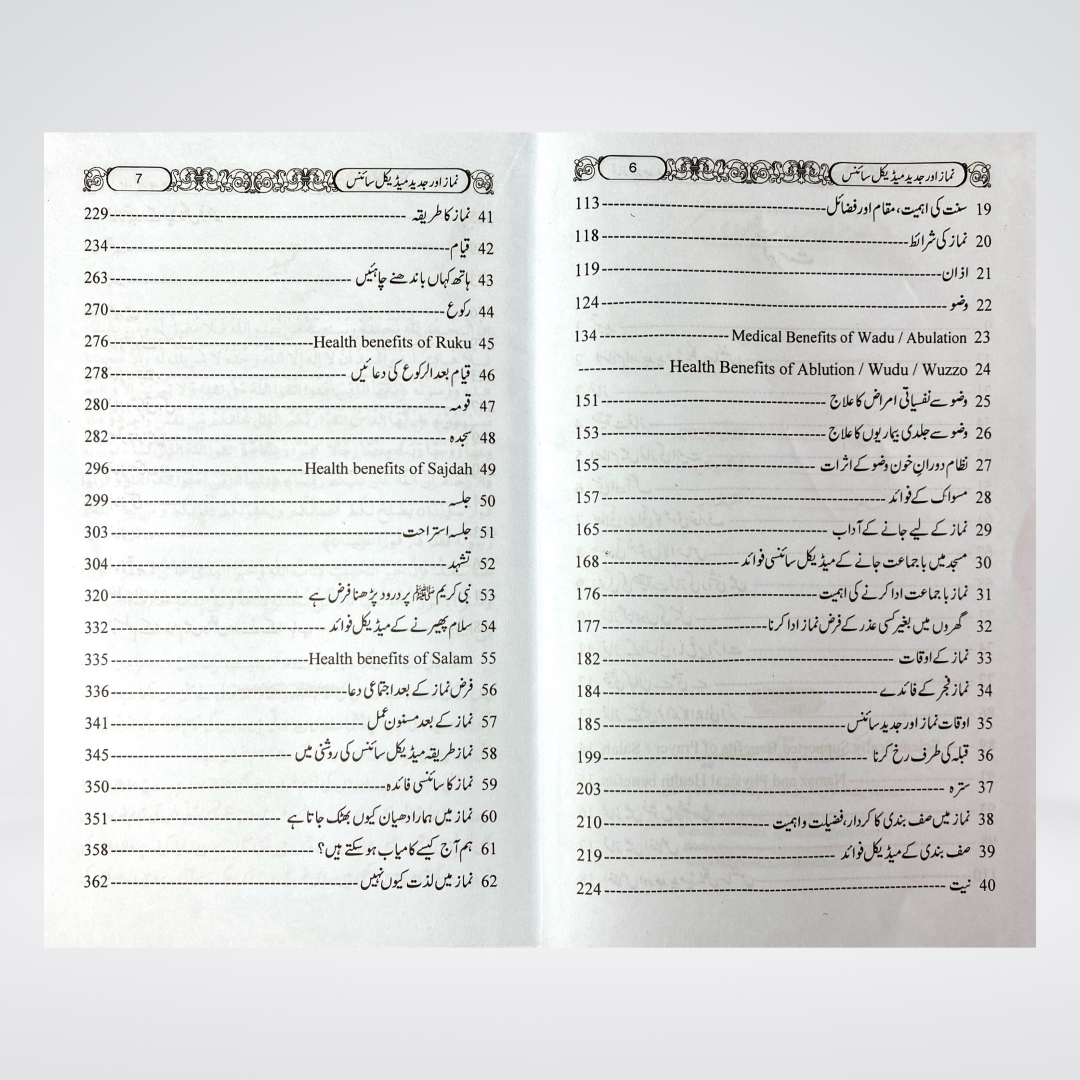 نماز اور جدید میڈیکل سائنس 6
19 سنت کی اہمیت، مقام اور فضائل 113
20 نماز کی شرائط 118
21 اذان 119
22 وضو 124
23 Medical Benefits of Wadu / Abulation 134
24 Health Benefits of Ablution / Wudu / Wuzzo
25 وضو سے نفسیاتی امراض کا علاج 151
26 وضو سے جلدی بیماریوں کا علاج 153
27 نظام دورانِ خون وضو کے اثرات 155
28 مسواک کے فوائد 157
29 نماز کے لیے جانے کے آداب 165
30 مسجد میں باجماعت جانے کے میڈیکل سائنسی فوائد 168
31 نماز باجماعت ادا کرنے کی اہمیت 176
32 گھروں میں بغیر کسی عذر کے فرض نماز ادا کرنا 177
33 نماز کے اوقات 182
34 نماز فجر کے فائدے 184
35 اوقات نماز اور جدید سائنس 185
36 قبلہ کی طرف رخ کرنا 199
37 سترہ 203
38 نماز میں صف بندی کا کردار، فضیلت و اہمیت 210
39 صف بندی کے میڈیکل فوائد 219
40 نیت 224
نماز اور جدید میڈیکل سائنس 7
41 نماز کا طریقہ 229
42 قیام 234
43 ہاتھ کہاں باندھنے چاہئیں 263
44 رکوع 270
45 Health benefits of Ruku 276
46 قیام بعد الرکوع کی دعائیں 278
47 قومہ 280
48 سجدہ 282
49 Health benefits of Sajdah 296
50 جلسہ 299
51 جلسہ استراحت 303
52 تشہد 304
53 نبی کریم ﷺ پر درود پڑھنا فرض ہے 320
54 سلام پھیرنے کے میڈیکل فوائد 332
55 Health benefits of Salam 335
56 فرض نماز کے بعد اجتماعی دعا 336
57 نماز کے بعد مسنون عمل 341
58 نماز طریقہ میڈیکل سائنس کی روشنی میں 345
59 نماز کا سائنسی فائدہ 350
60 نماز میں ہمارا دھیان کیوں بھٹک جاتا ہے 351
61 ہم آج کیسے کامیاب ہو سکتے ہیں؟ 358
62 نماز میں لذت کیوں نہیں 362